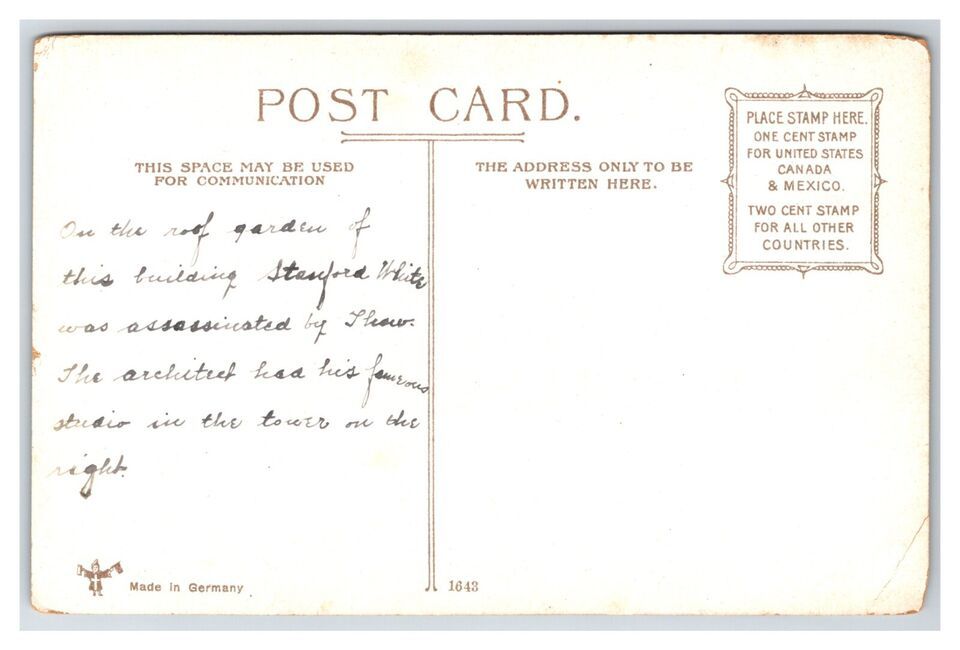 POST CARD.
THIS SPACE MAY BE USED
FOR COMMUNICATION
On the roof garden of
this building Stanford White
was assassinated by Thaw.
The architect had his famous
studio in the tower on the
right.
Made in Germany
THE ADDRESS ONLY TO BE
WRITTEN HERE.
1643
PLACE STAMP HERE.
ONE CENT STAMP
FOR UNITED STATES
CANADA
& MEXICO.
TWO CENT STAMP
FOR ALL OTHER
COUNTRIES.